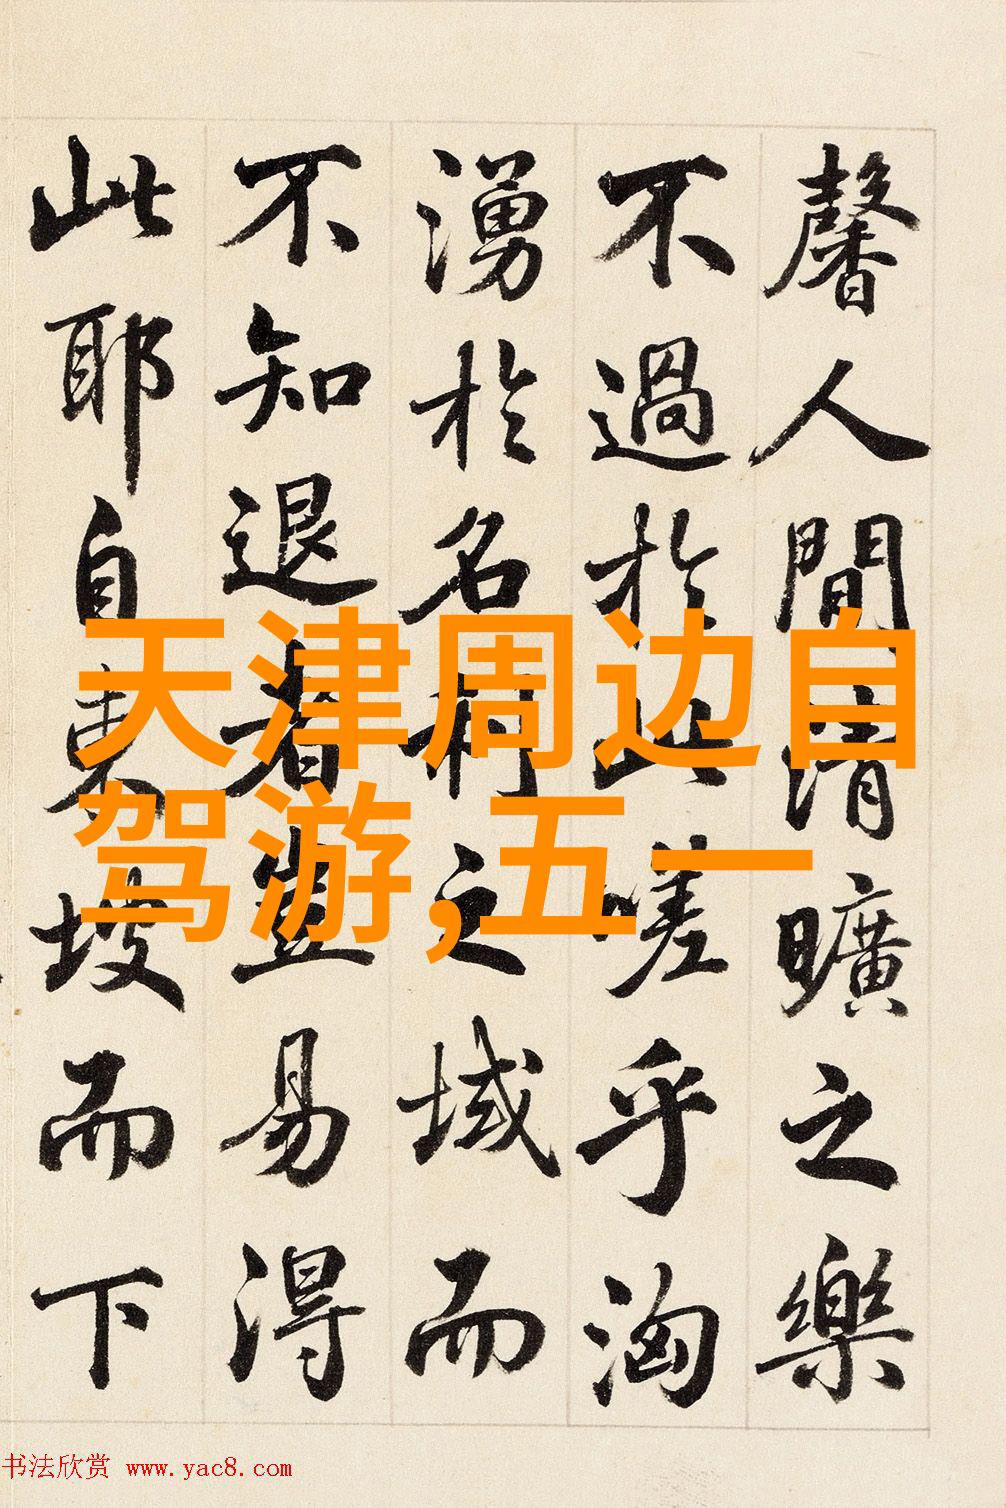 馨人間清曠之樂
不過於此嗟乎洶
湧於名稱之域而
不知退者豈易得
此耶自東坡而下
天津周边自
驾游,五一
书法欣赏 www.yac8.com